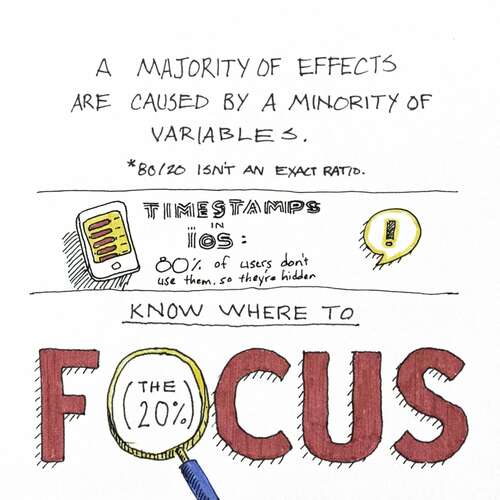 A MAJORITY OF EFFECTS
ARE CAUSED BY A MINORITY OF
VARIABLES.
*80/20 ISN'T AN EXACT RATIO.
TIMESTAMPS
IN
iOS:
80% of users don't
use them, so they're hidden
!
KNOW WHERE TO
FOCUS
(THE
20%)